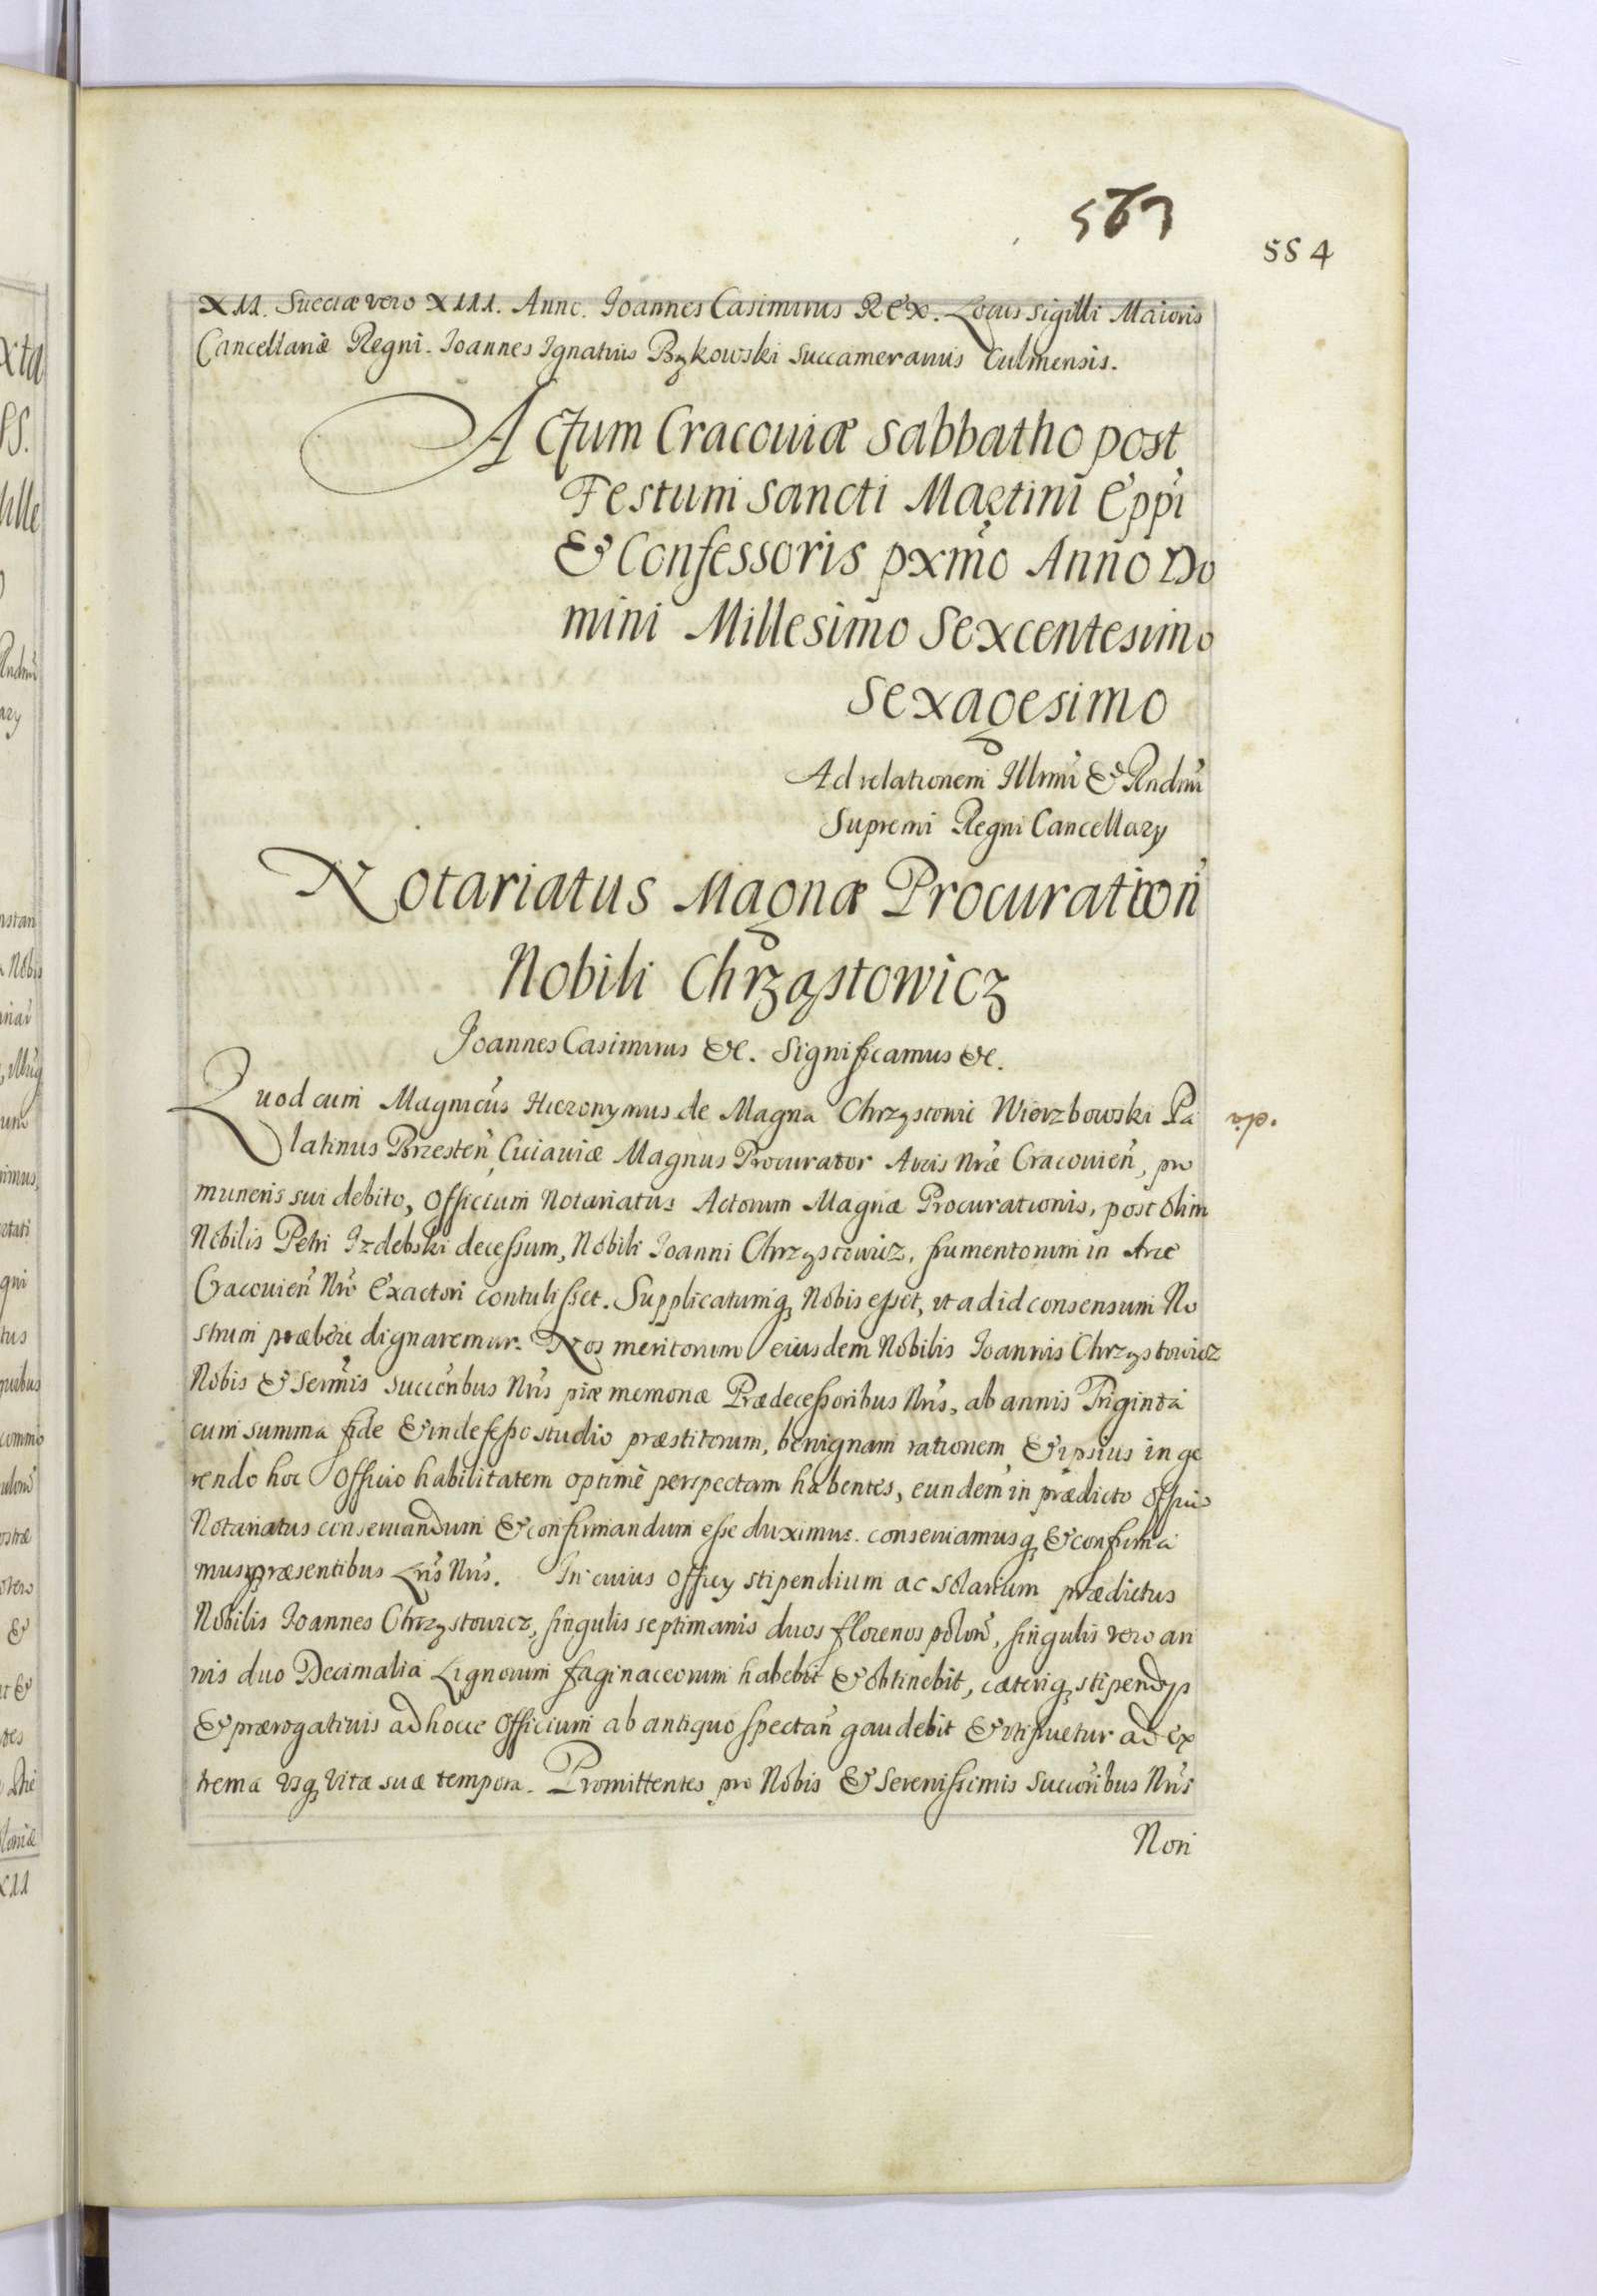 567
554
XII. Sueciæ vero XIII. Anno. Joannes Casimirus REX. Locus Sigilli Maioris
Cancellariæ Regni. Joannes Ignatius Bąkowski Succamerarius Culmensis.
Actum Cracouiæ Sabbatho post
Festum Sancti Martini Eppi
& Confessoris pxmo Anno Do
mini Millesimo Sexcentesimo
Sexagesimo
Ad relationem Illmi & Rndmi
Supremi Regni Cancellary
Notariatus Magnæ Procuration
Nobili Chrząstowicz
Joannes Casimirus &c. Significamus &c.
Quod cum Magnicus Hieronymus de Magna Chrząstowie Wierzbowski Pa
latinus Brzesten, Cuiauiæ Magnus Procurator Arcis Nræ Cracouien, pro
muneris sui debito, Officium Notariatus Actorum Magnæ Procurationis, post olim
Nobilis Petri Izdebski decessum, Nobili Joanni Chrząstowicz, frumentorum in Arce
Cracouien Nro Exactori contulisset. Supplicatumq Nobis esset, vt ad id consensum No
strum præbere dignaremur. Nos meritorum eiusdem Nobilis Joannis Chrząstowicz
Nobis & Sermis Succoribus Nris piæ memoriæ Prædecessoribus Nris, ab annis Triginta
cum summa fide & indefesso studio præstitorum, benignam rationem, & ipsius in ge
rendo hoc Officio habilitatem optimè perspectam habentes, eundem in prædicto Officio
Notariatus conseruandum & confirmandum esse duximus. conseruamusq & confirma
musq præsentibus Lris Nris. In cuius Officy stipendium ac solarium prædictus
Nobilis Joannes Chrząstowicz, singulis septimanis duos florenos polon, singulis vero an
nis duo Decimalia Lignorum faginaceorum habebit & obtinebit, cæterisq stipendys
& prærogatiuis ad hocce Officium ab antiquo spectan gaudebit & vtifruetur ad ex
trema vsq vitæ suæ tempora. Promittentes pro Nobis & Serenissimis Succoribus Nris
Non